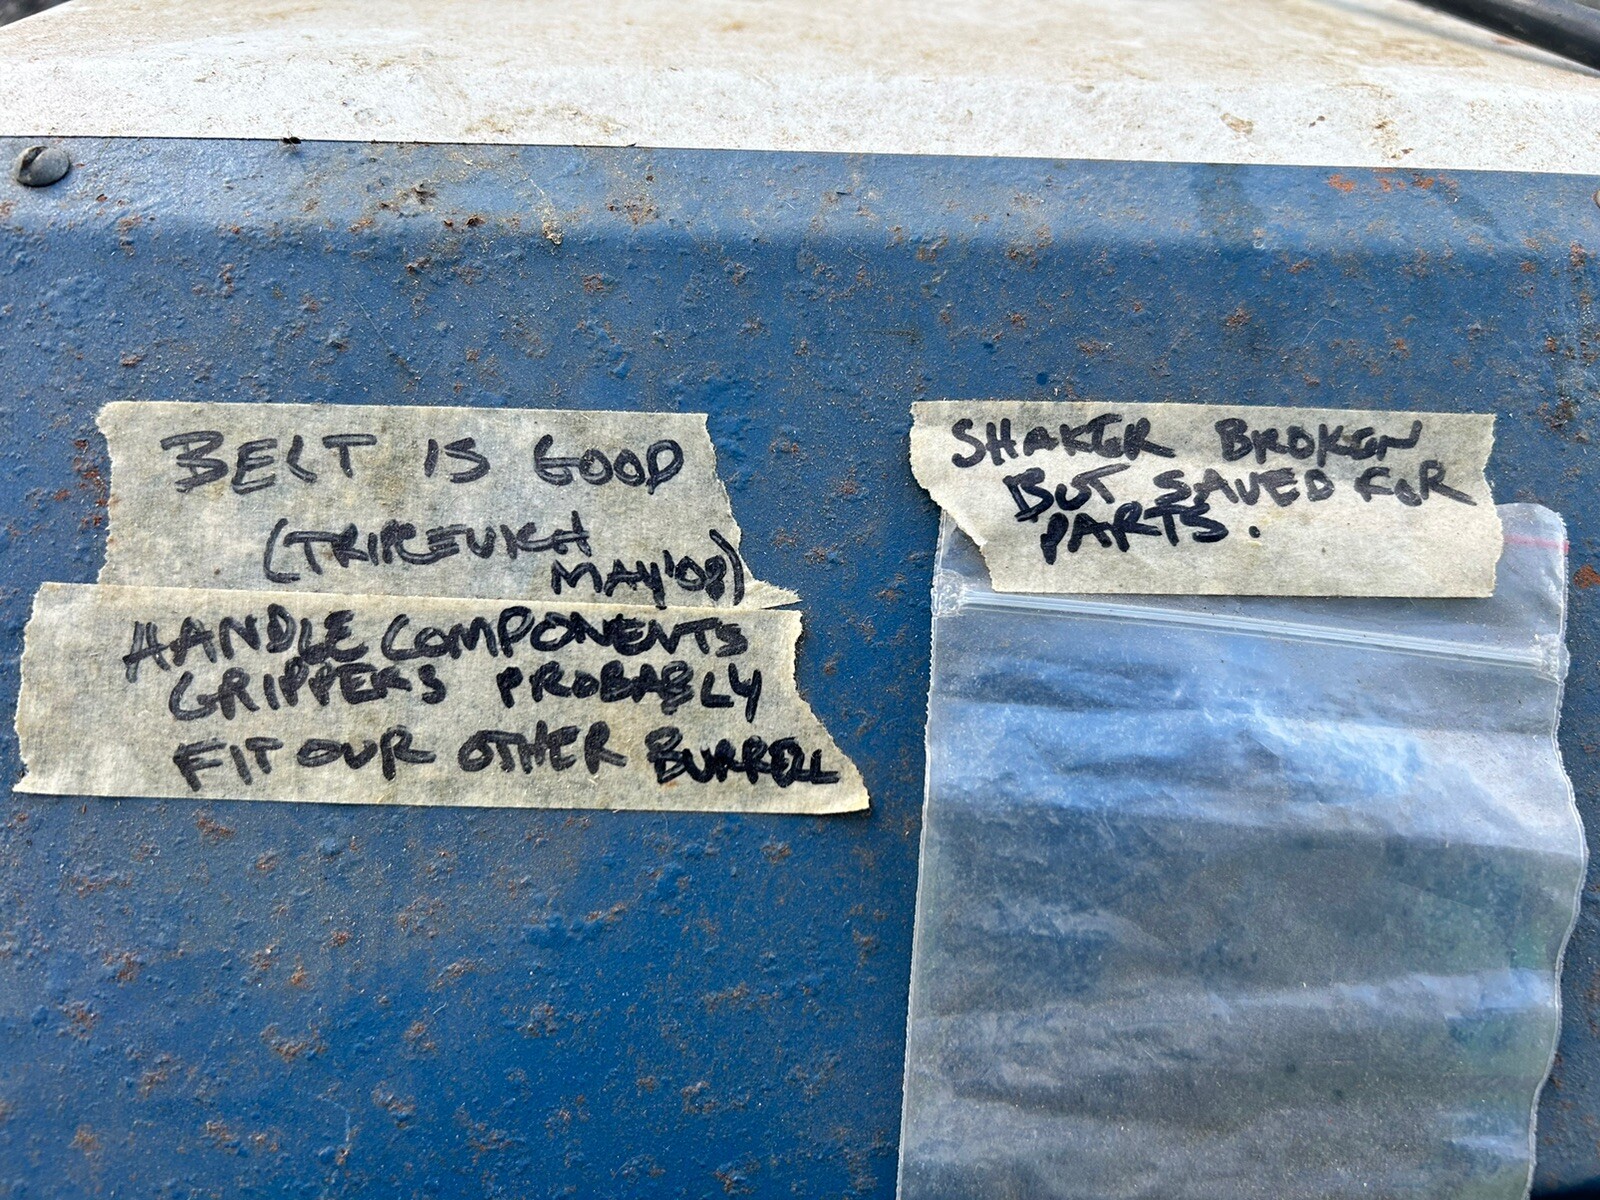 BELT IS GOOD
MAY'08)
HANDLE COMPONENTS
GRIPPERS PROBABLY
FIT OUR OTHER BURRELL
SHAKER BROKEN
BUT SAVED FOR
PARTS.